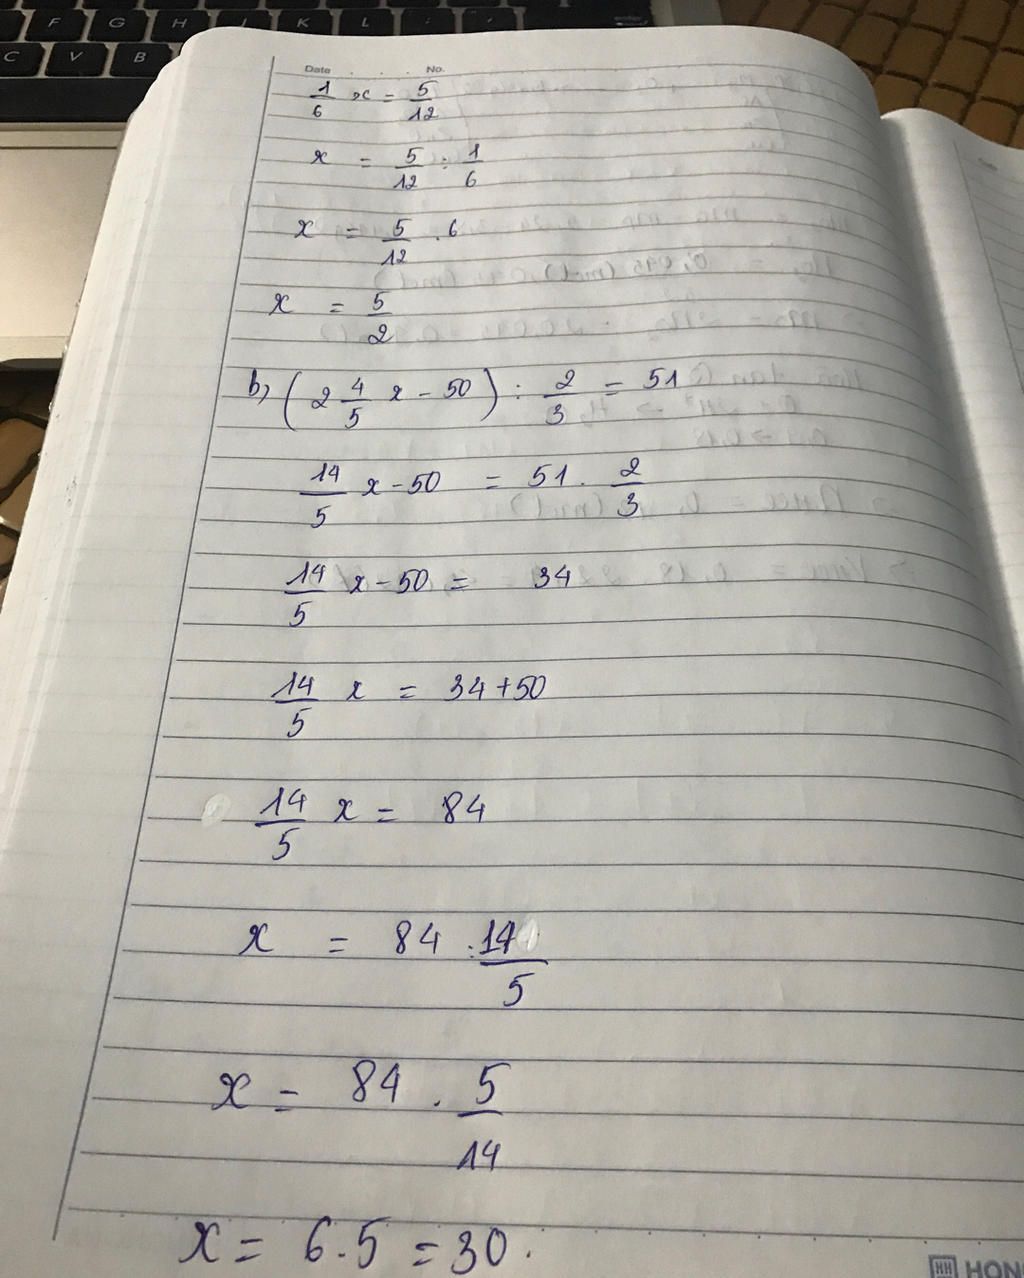 F G H J K L : ;
C V B
Date . . . No.
1/6 x = 5/12
x = 5/12 : 1/6
x = 5/12 . 6
x = 5/2
b, (2 4/5 x - 50) : 2/3 = 51
14/5 x - 50 = 51 . 2/3
14/5 x - 50 = 34
14/5 x = 34 + 50
14/5 x = 84
x = 84 : 14/5
x = 84 . 5/14
x = 6.5 = 30.
HH HON